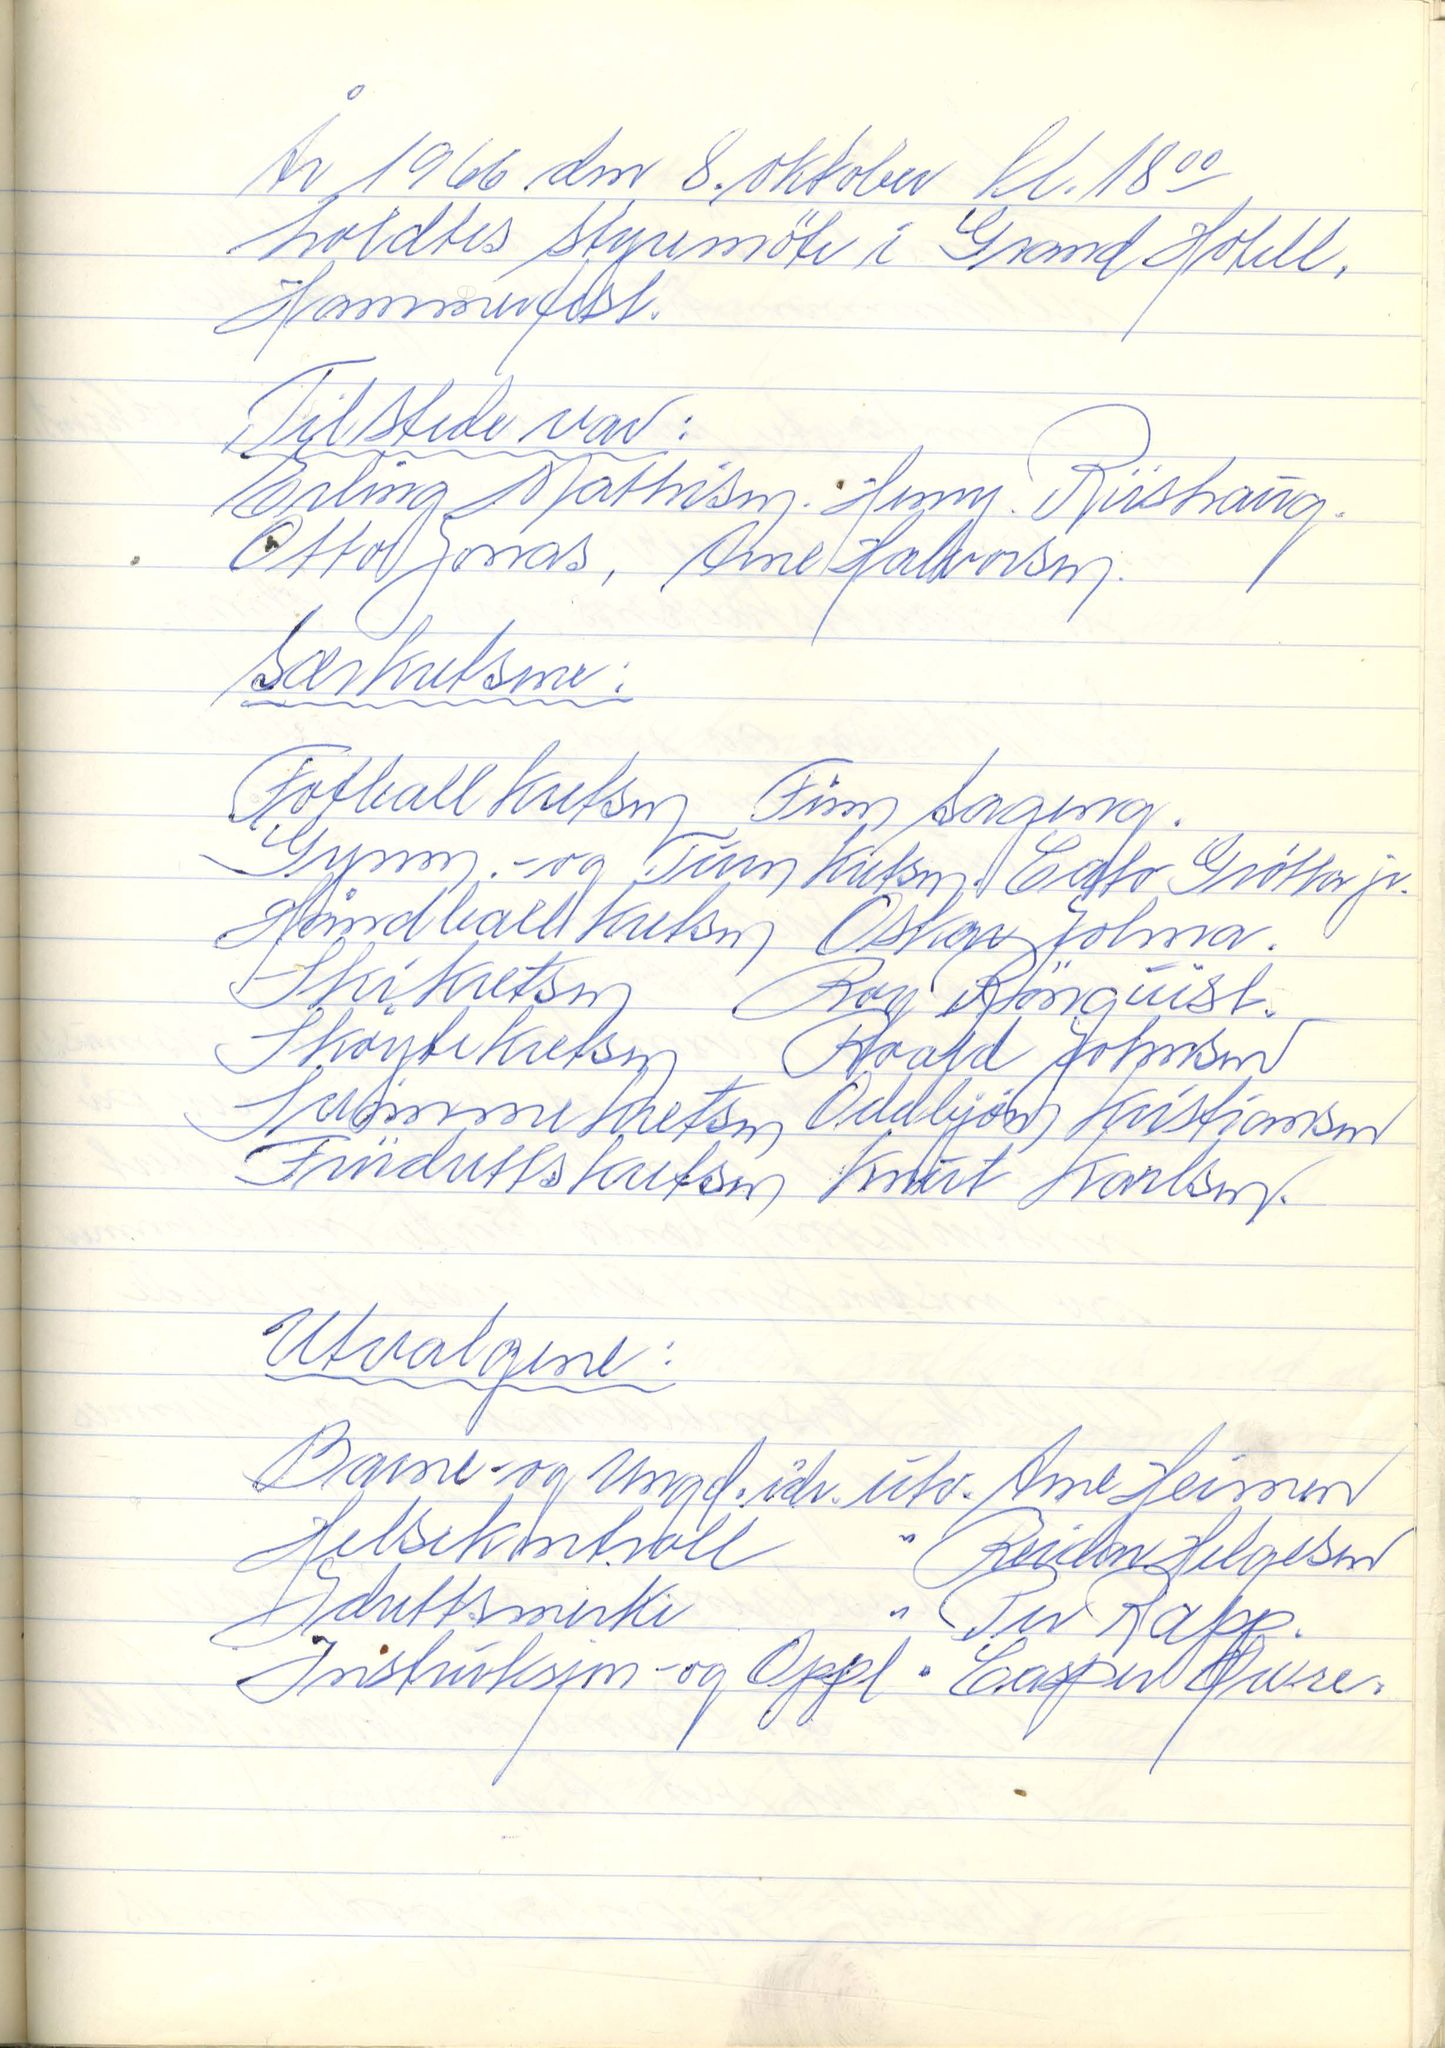 År 1966 den 8. oktober kl. 18⁰⁰
holdtes styremöte i Grand Hotell,
Hammerfest.
Tilstede var:
Erling Mathisen. Henry. Riishaug.
Otto Jonas, Arne Halvorsen.
Særkretsene:
Fotballkretsen Finn Sagen.
Gymn.-og Turnkretsen. Cato Grötta jr.
Håndballkretsen Oskar Jolma.
Skikretsen Roy Rönquist.
Skøytekretsen Roald Johnsen
Svømmekretsen Oddbjörn Kristiansen
Friidrettskretsen Knut Karlsen.
Utvalgene:
Barne-og Ungd. idr. utv. Arne Heimen
Helsekontroll " Reidar Helgesen
Idrettsmerke " Per Rapp.
Instruksjon-og Oppl " Casper